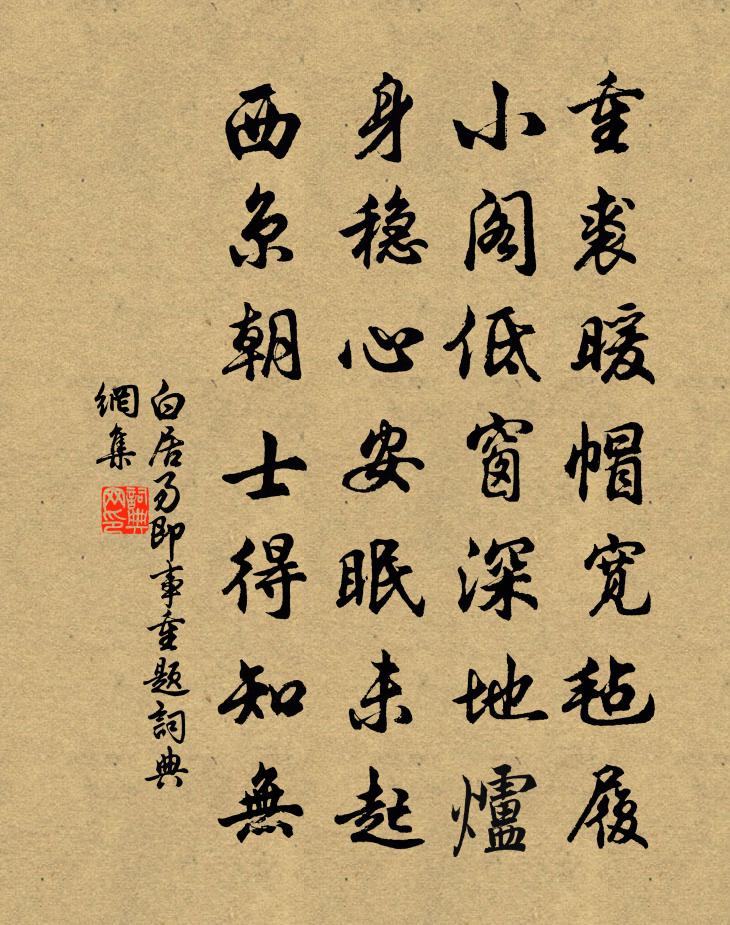 重裘暖帽寬毡履
小阁低窗深地爐
身稳心安眠未起
西京朝士得知無
白居易即事重題詞典
網集
詞典
网印